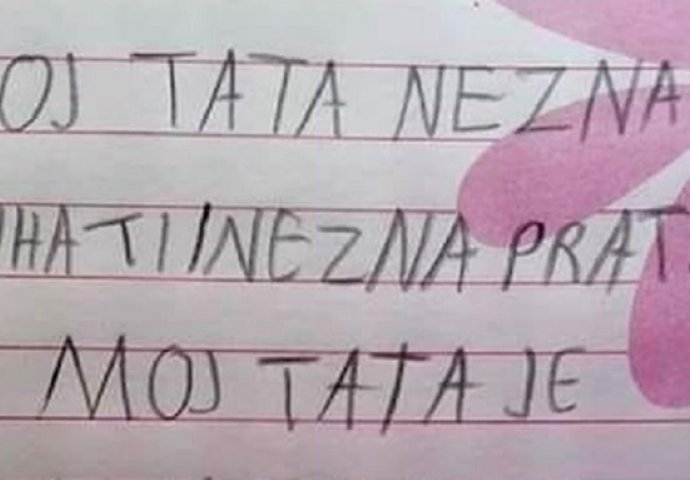 OJ TATA NEZNA
HATI I NEZNA PRAT
MOJ TATA JE